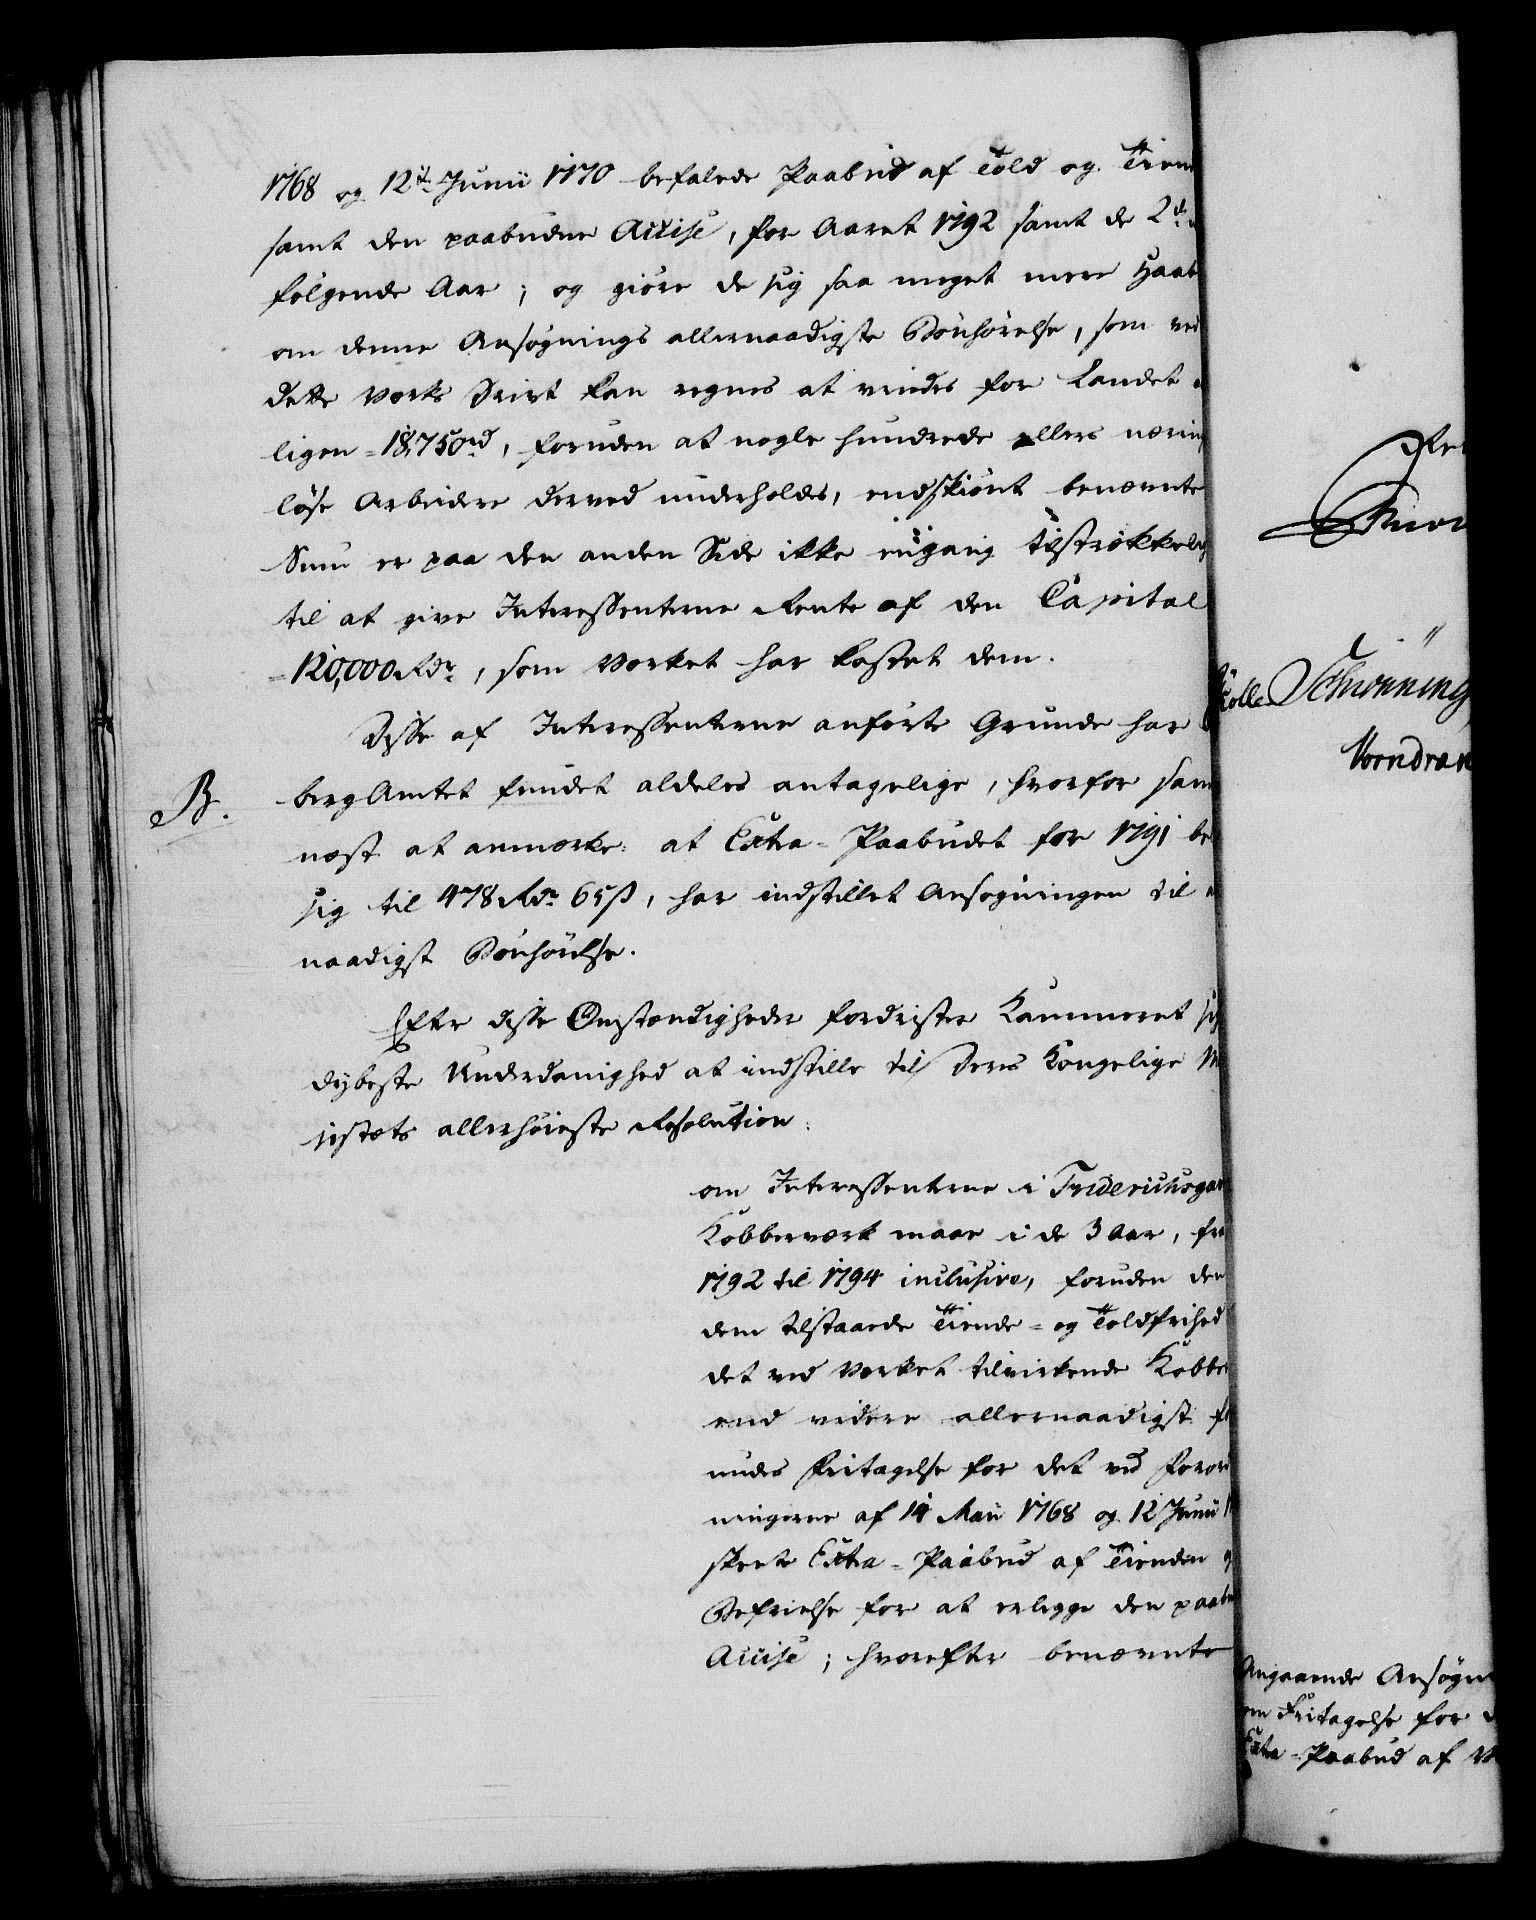 1768 og 12te Junii 1770 befalede Paabud af Told og Tien
samt den paabudne Accise, for Aaret 1792 samt de 2de
følgende Aar; og giøre de sig saa meget mere Haab
om denne Ansøgnings allernaadigste Bønhørelse, som ved
dette Værks Drivt kan regnes at vindes for Landet
ligen = 18,750rd, foruden at nogle hundrede ellers næring
løse Arbeidere derved underholdes, endskiønt benævnte
Sum er paa den anden Side ikke eengang tilstrækkelig
til at give Interessenterne Rente af den Capital
= 120,000 Rdr, som Værket har kostet dem.
Disse af Interessenterne anførte Grunde har
B.
bergAmtet fundet aldeles antagelige, hvorfor sam
næst at anmærke: at Extra-Paabudet for 1791 be
sig til 478 Rdr 65ß, har indstillet Ansøgningen til
naadigst Bønhørelse.
Efter disse Omstændigheder fordrister Kammeret sig
dybeste Underdanighed at indstille til Deres Kongelige M
jestæts allerhøieste Resolution:
om Interessenterne i Friderichsgav
Kobberværk maae i de 3 Aar, fra
1792 til 1794 inclusive, foruden den
dem tilstaaede Tiende- og Toldfrihed
det ved Værket tilvirkende Kobber
end videre allernaadigst for
undes Fritagelse for det ved Foror
ningerne af 14 Maii 1768 og 12 Junii 1
skeete Extra-Paabud af Tienden
Befrielse for at erlegge den paabu
Accise; hvorefter benævnte
Schiønning
Vorndran
Angaaende Ansøgn
om Fritagelse for
Extra-Paabud af